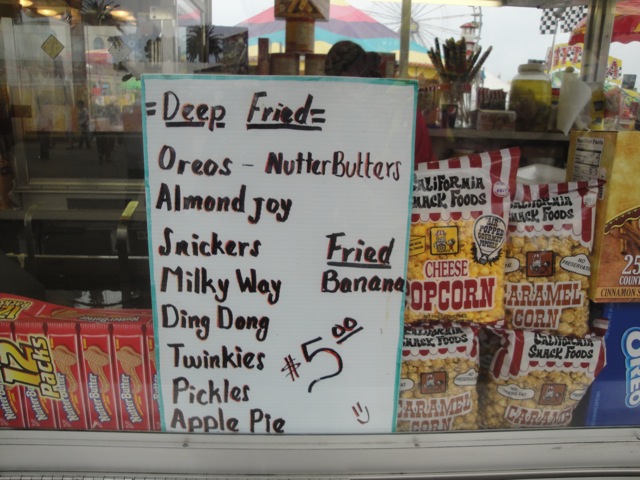 = Deep Fried =
Oreos - NutterButters
Almond Joy
Snickers
Milky Way
Ding Dong
Twinkies
Pickles
Apple Pie
Fried
Banana
$5.00
12
PACKS
Nutter Butter
CALIFORNIA
SNACK FOODS
AIR
POPPED
CHEESE
POPCORN
CALIFORNIA
SNACK FOODS
NO
PRESERVATIVES
CARAMEL
CORN
CALIFORNIA
SNACK FOODS
CARAMEL
CORN
CALIFORNIA
SNACK FOODS
CARAMEL
25
COUNT
CINNAMON
OREO